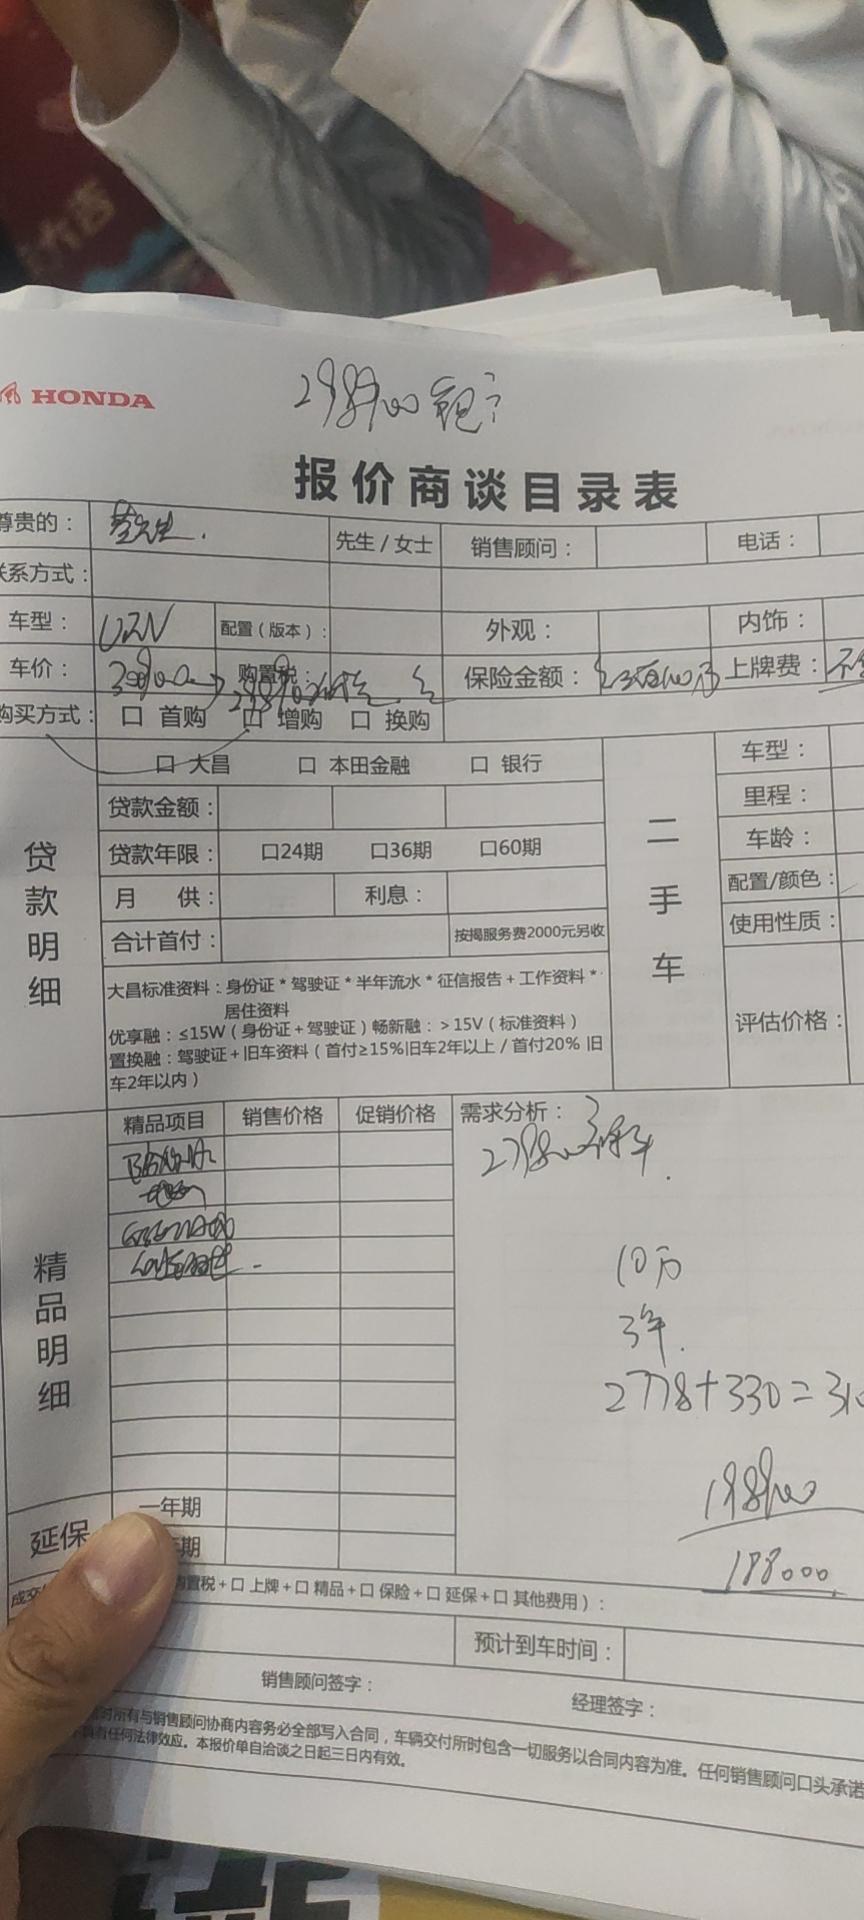 HONDA
报价商谈目录表
尊贵的：
先生/女士 销售顾问： 电话：
联系方式：
车型： 配置（版本）： 外观： 内饰：
车价： 购置税： 保险金额： 上牌费：
购买方式： 口 首购 口 增购 口 换购
口 大昌 口 本田金融 口 银行
贷款明细
贷款金额：
贷款年限： 口24期 口36期 口60期
月 供： 利息：
合计首付： 按揭服务费2000元另收
大昌标准资料：身份证*驾驶证*半年流水*征信报告+工作资料*
居住资料
优享融：≤15W（身份证+驾驶证）畅新融：>15V（标准资料）
置换融：驾驶证+旧车资料（首付≥15%|旧车2年以上/首付20% |旧
车2年以内）
二手车
车型：
里程：
车龄：
配置/颜色：
使用性质：
评估价格：
精品明细
精品项目 销售价格 促销价格 需求分析：
10万
3年.
2778+330=310
188000.
延保 一年期
年期
购置税+口 上牌+口 精品+口 保险+口 延保+口 其他费用）：
预计到车时间：
销售顾问签字： 经理签字：
时所有与销售顾问协商内容务必全部写入合同，车辆交付所时包含一切服务以合同内容为准。任何销售顾问口头承诺
有任何法律效应。本报价单自洽谈之日起三日内有效。